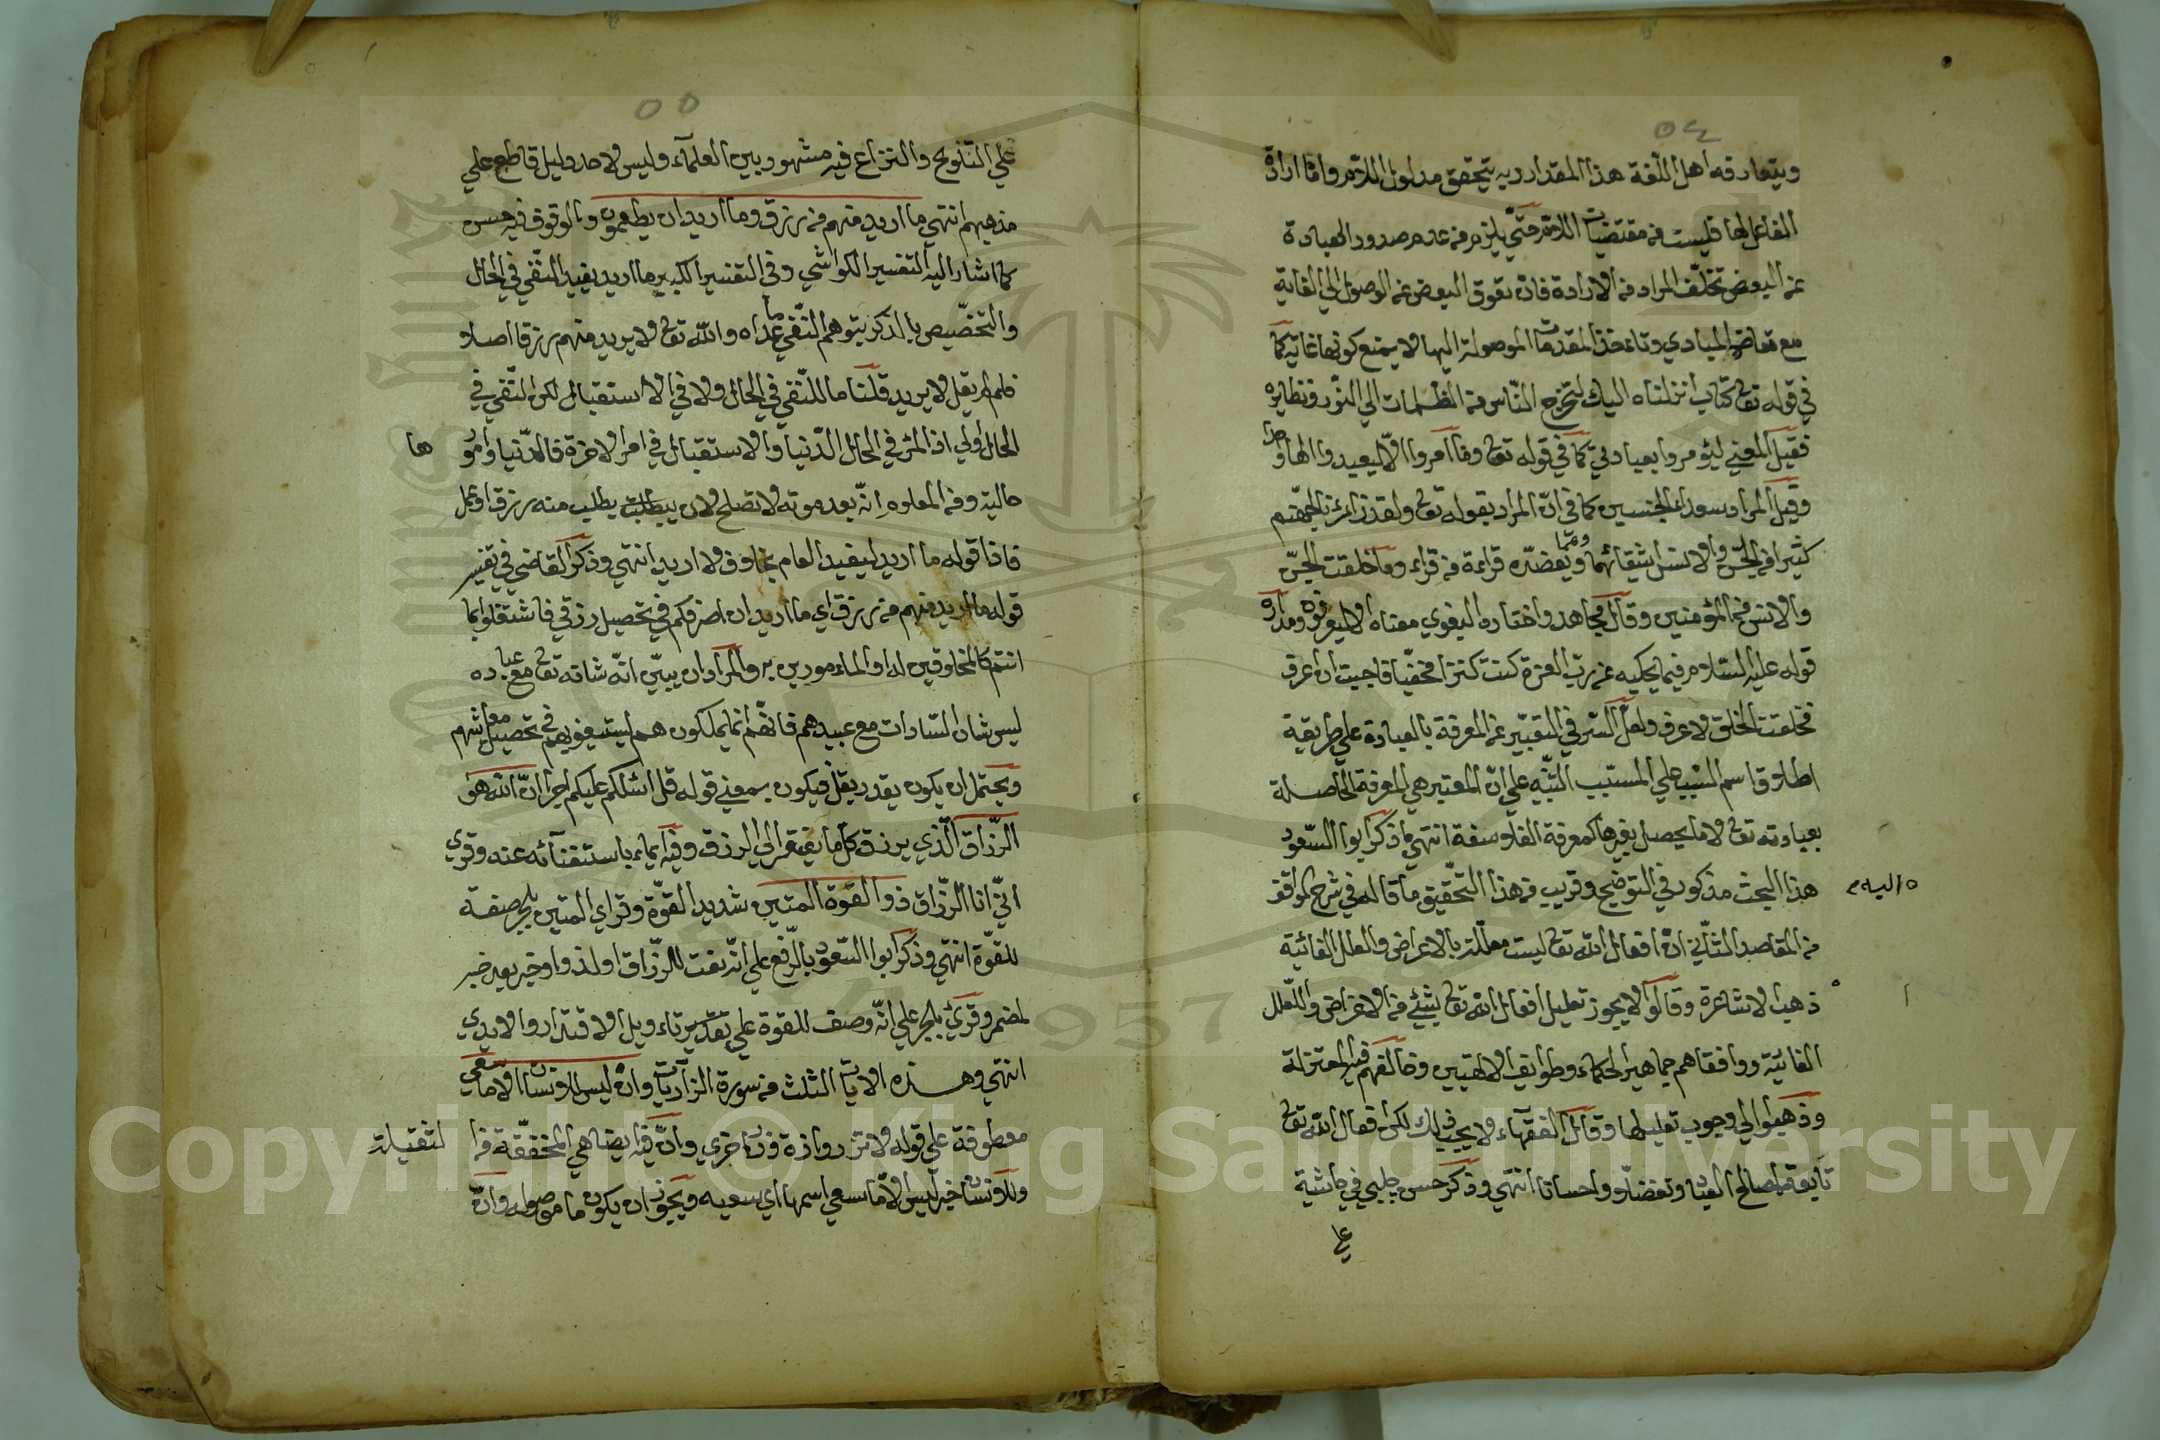 ٥٤
ويتعارفه اهل اللغة هذا المقدار وبه يتحقق مدلول اللام واما ارادة
الفاعل لها فليست من مقتضيات اللام حتى يلزم من عدم صدور العبادة
عن البعض تخلف المراد من الارادة فان تعوق البعض عن الوصول الى الغاية
مع تعاضد المبادي وتأخذ المقدمات الموصولة اليها لا يمنع كونها غاية كما
في قوله تعالى كتاب انزلناه اليك لتخرج الناس من الظلمات الى النور ونظايره
فقيل المعنى ليؤمروا بعبادتي كما في قوله تعالى وما امروا الا ليعبدوا الها واحدا
وقيل المراد سعداء الجنسين كما في ان المراد بقوله تعالى ولقد ذرأنا لجهنم
كثيرا من الجن والانس اشقيائهما ومما ويعضده قراءة من قراء وما خلقت الجن
والانس من المؤمنين وقال مجاهد واختاره البغوي معناه الا ليعرفوه ومداره
قوله عليه السلام فيما يحكيه عن رب العزة كنت كنزا مخفيا فاحببت ان اعرف
فخلقت الخلق لاعرف ولعل السر في التعبير عن المعرفة بالعبادة على طريقة
اطلاق اسم السبب على المسبب التنبيه على ان المعتبر هي المعرفة الحاصلة
بعبادته تعالى لا ما يحصل بغيرها كمعرفة الفلاسفة انتهى ما ذكر ابوا السعود
هذا البحث مذكور في التوضيح وقريب من هذا التحقيق ما قاله في شرح المواقف
من المقاصد الثاني ان افعال الله تعالى ليست معللة بالاغراض والعلل الغائية
ذهب الاشاعرة وقالوا لا يجوز تعليل افعال الله تعالى بشيء من الاغراض والعلل
اليه
الغائية ووافقاهم جماهير الحكماء وطوايف الالهيين وخالفهم فيه المعتزلة
وذهبوا الى وجوب تعليلها وقال الفقهاء ولا يجب ذلك لكن افعال الله تعالى
تابعة لمصالح العباد وتفضلا واحسانا انتهى وذكر حسن چلبي في حاشية
على
٥٥
على التلويح والنزاع فيه مشهور بين العلماء وليس لاحد دليل قاطع على
مذهبهم انتهى ما اريد منهم من رزق وما اريد ان يطعمون والوقوف فيه حسن
كما اشار اليه التفسير الكواشي وفي التفسير الكبير ما اريد يفيد النفي في الحال
والتخصيص بالذكر يتوهم النفي ما عداه والله تعالى لا يريد منهم رزقا اصلا
فلم لم يقل لا يريد قلنا ما للنفي في الحال ولا في الاستقبال لكن النفي في
الحال اولى اذ المرء في الحال الدنيا والاستقبال في امر الاخرة فالدنيا وامور
ها
حالية ومن المعلوم انه بعد موته لا تصلح لان يطلب منه رزق او عمل
فاذا قوله ما اريد ليفيد العام بخلاف لا اريد انتهى وذكر القاضي في تفسير
قوله ما اريد منهم من رزق اي ما اريد ان اصرفكم في تحصيل رزقي فاشتغلوا بما
انتم كالمخلوقين له او المأمورين به والمراد ان يبين انه شانه تعالى مع عباده
ليس شان السادات مع عبيدهم فانهم انما يملكون هم ليستعينوبهم في تحصيل معاشهم
ويحتمل ان يكون يقدر بقل فيكون بمعنى قوله قل اسئلكم عليكم اجرا ان الله هو
الرزاق الذي يرزق كل ما يفتقر الى الرزق وفيه ايماء باستغنائه عنه وقرئ
اني انا الرزاق ذوا القوة المتين شديد القوة وقرئ المتين بالجر صفة
للقوة انتهى وذكر ابوا السعود بالرفع على انه نعت للرزاق او لذو او خبر بعد خبر
لمضمر وقرئ بالجر على انه وصف للقوة على تقدير تاءويل الاقتدار والايدي
انتهى وهذه الايات الثلث من سورة الذاريات وان ليس للانسان الا ما سعى
معطوفة على قوله لا تزر وازرة وزر اخرى وان فيه ايضا هي المخففة من الثقيلة
وللانسان خبر ليس الا ما سعى اسمها اي سعيه ويجوز ان يكون ما موصولة وان
Copyright © King Saud University
1957